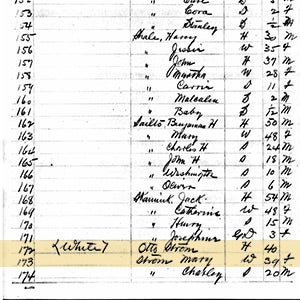 " Cora D 2 f
154 " Stanley D
155 Shale, Harry H 30 M
156 " Jessie W 35 f
157 " John H 37 m
158 " Martha W 28 f
159 " Carrie D 11 f
160 " Malcalia D 2 f
161 " Baby D M
162 Smith Benjamin H H 50 M
163 " Mary W 48 f
164 " Charles H S 24 M
165 " John H S 18 M
166 " Washington S 10 M
167 " Oliver S 6 M
168 Jack H 54 M
169 " Catherine W 48 f
170 " Henry S 15 M
171 " Josephine GrD 3 f
172 (White) Otto Strom H 40
173 Strom Mary W 39 f
174 " Charley S 20 M